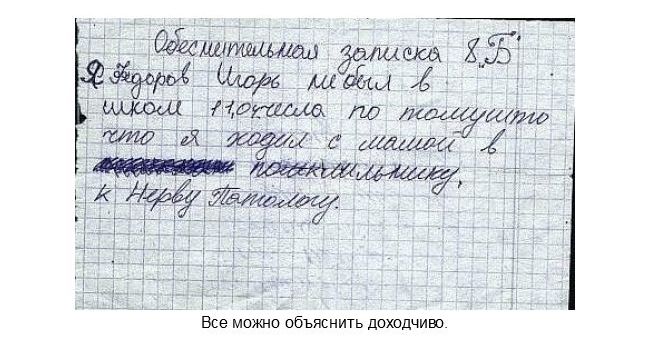 Обеснительная записка 8„Б"
Я Федоров Игорь небыл в
школ 11,04числа по томушто
что я ходил с мамой в
к Нерву Патологу.
Все можно объяснить доходчиво.